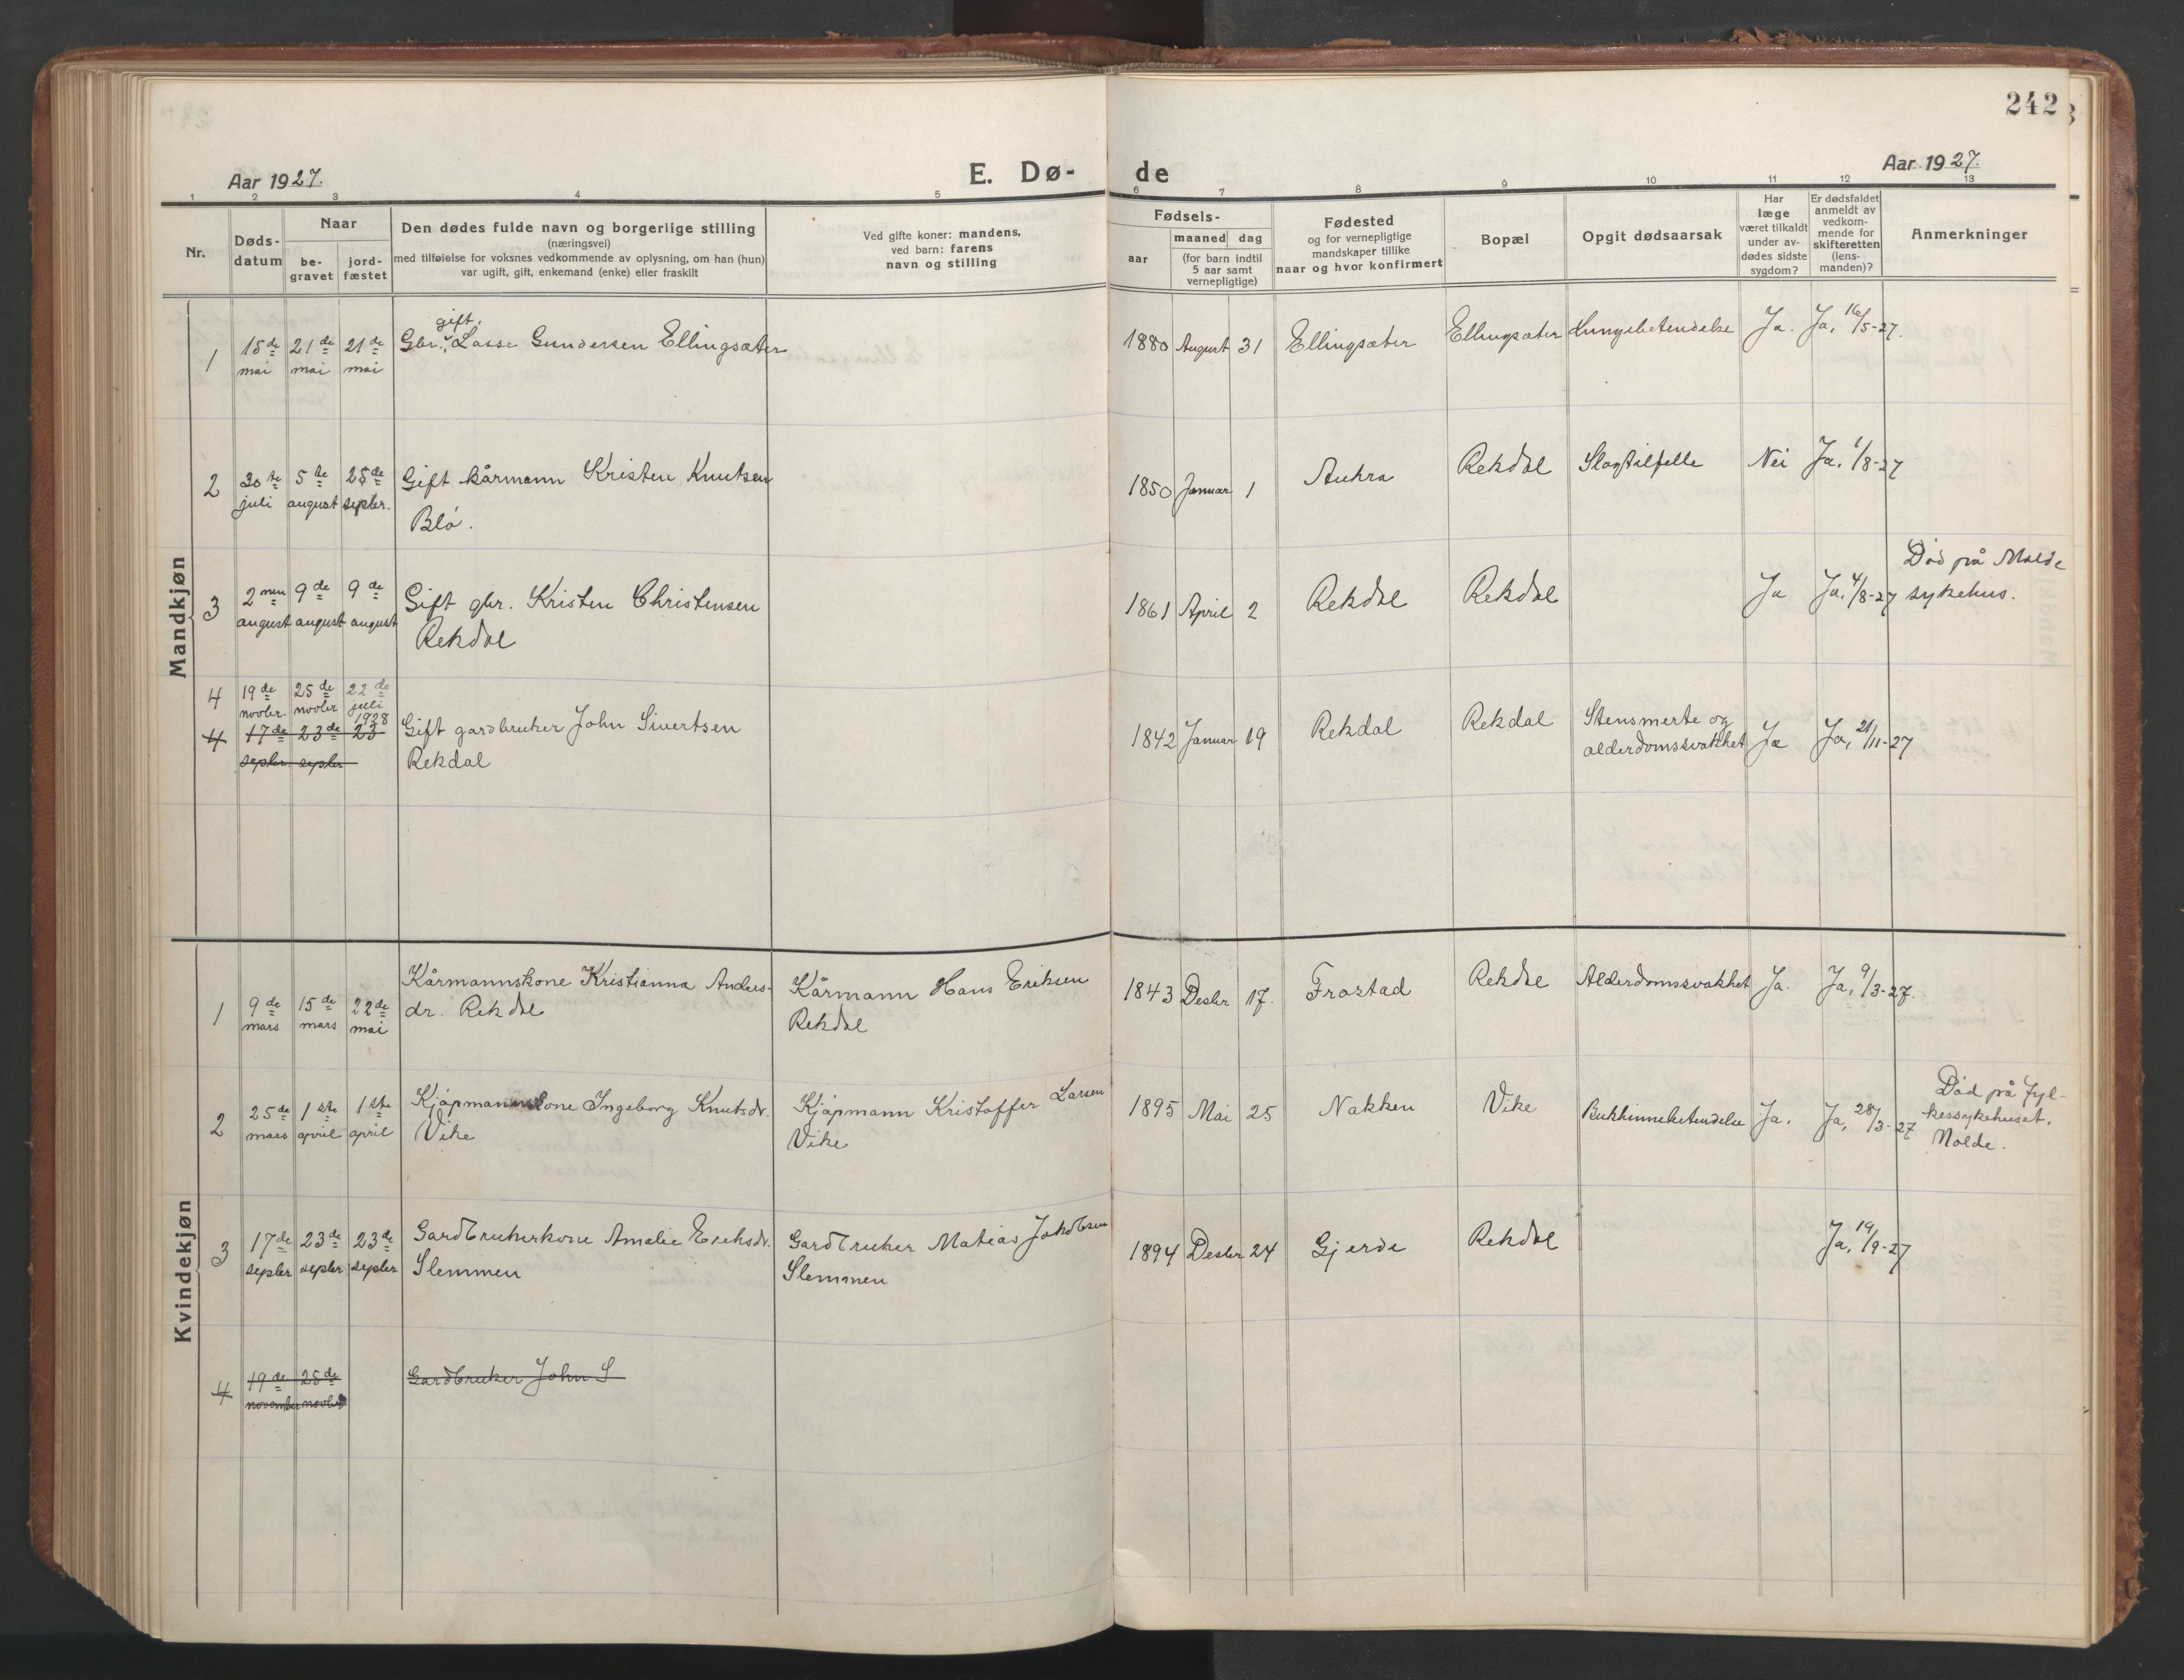 242
Aar 1927.
E. Dø-
de
Aar 1927.
1 2 3 4 5 6 7 8 9 10 11 12 13
Nr.
Døds-
datum
Naar
be-
gravet
jord-
fæstet
Den dødes fulde navn og borgerlige stilling
(næringsvei)
med tilføielse for voksnes vedkommende av oplysning, om han (hun)
var ugift, gift, enkemand (enke) eller fraskilt
Ved gifte koner: mandens,
ved barn: farens
navn og stilling
Fødsels-
aar
maaned dag
(for barn indtil
5 aar samt
vernepligtige)
Fødested
og for vernepligtige
mandskaper tillike
naar og hvor konfirmert
Bopæl
Opgit dødsaarsak
Har
læge
været tilkaldt
under av-
dødes sidste
sygdom?
Er dødsfaldet
anmeldt av
vedkom-
mende for
skifteretten
(lens-
manden)?
Anmerkninger
Mandkjøn
gift.
1 15de 21de 21de Gbr. Lasse Gundersen Ellingsæter 1880 August 31 Ellingsæter Ellingsæter Lungebetendelse Ja. Ja, 16/5-27.
mai mai mai
2 30te 5te 25de Gift kårmann Kristen Knutsen 1850 Januar 1 Aukra Rekdal Slagtilfelle Nei Ja, 1/8-27
juli august septbr. Blø.
3 2nen 9de 9de Gift gbr. Kristen Christensen 1861 April 2 Rekdal Rekdal Ja Ja, 4/8-27 Død på Molde
august august august Rekdal sykehus.
4 19de 25de 22de
novbr. novbr juli
1928
4 17de 23de 23 Gift gardbruker John Sivertsen 1842 Januar 19 Rekdal Rekdal Stensmerte og Ja Ja, 21/11-27
septbr. septbr Rekdal alderdomssvakhet
Kvindekjøn
1 9de 15de 22de Kårmannskone Kristianna Anders- Kårmann Hans Eriksen 1843 Desbr 17. Frostad Rekdal Alderdomssvakhet Ja. Ja, 9/3-27.
mars mars mai dr. Rekdal Rekdal
2 25de 1ste 1ste Kjøpmannskone Ingeborg Knutsdr. Kjøpmann Kristoffer Larsen 1895 Mai 25 Nakken Vike Bukhinnebetendelse Ja. Ja, 28/3-27 Død på Fyl-
mars april april Vike Vike kessykehuset,
Molde.
3 17de 23de 23de Gardbrukerkone Amalie Eriksdr. Gardbruker Matias Jakobsen 1894 Desbr 24 Gjerde Rekdal Ja, 19/9-27
septbr septbr septbr Slemmen Slemmen
4 19de 25de Gardbruker John S
november novbr